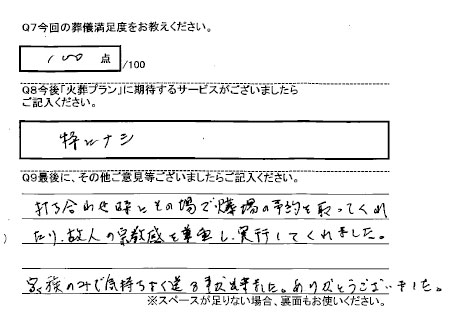 Q7今回の葬儀満足度をお教えください。
100 点 /100
Q8今後「火葬プラン」に期待するサービスがございましたら
ご記入ください。
特にナシ
Q9最後に、その他ご意見等ございましたらご記入ください。
打ち合わせ時にその場で火葬場の予約を取ってくれ
たり、故人の宗教感を尊重し、実行してくれました。
家族のみで気持ちよく送る事が出来ました。ありがとうございました。
※スペースが足りない場合、裏面もお使いください。